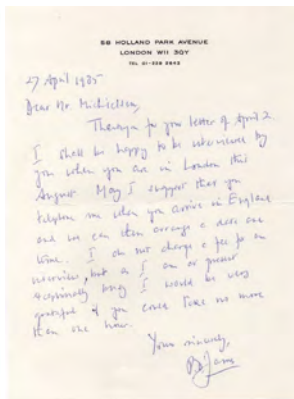 58 HOLLAND PARK AVENUE
LONDON W11 3QY
27 April 1985
Dear Mr. Michielsen,
Thankyou for your letter of April 2.
I shall be happy to be interviewed by
you when you are in London this
August. May I suggest that you
telephone me when you arrive in England
and we can then arrange a date and
time. I do not charge a fee for an
interview, but as I am at present
exceptionally busy I would be very
grateful if you could take no more
than one hour.
Yours sincerely,